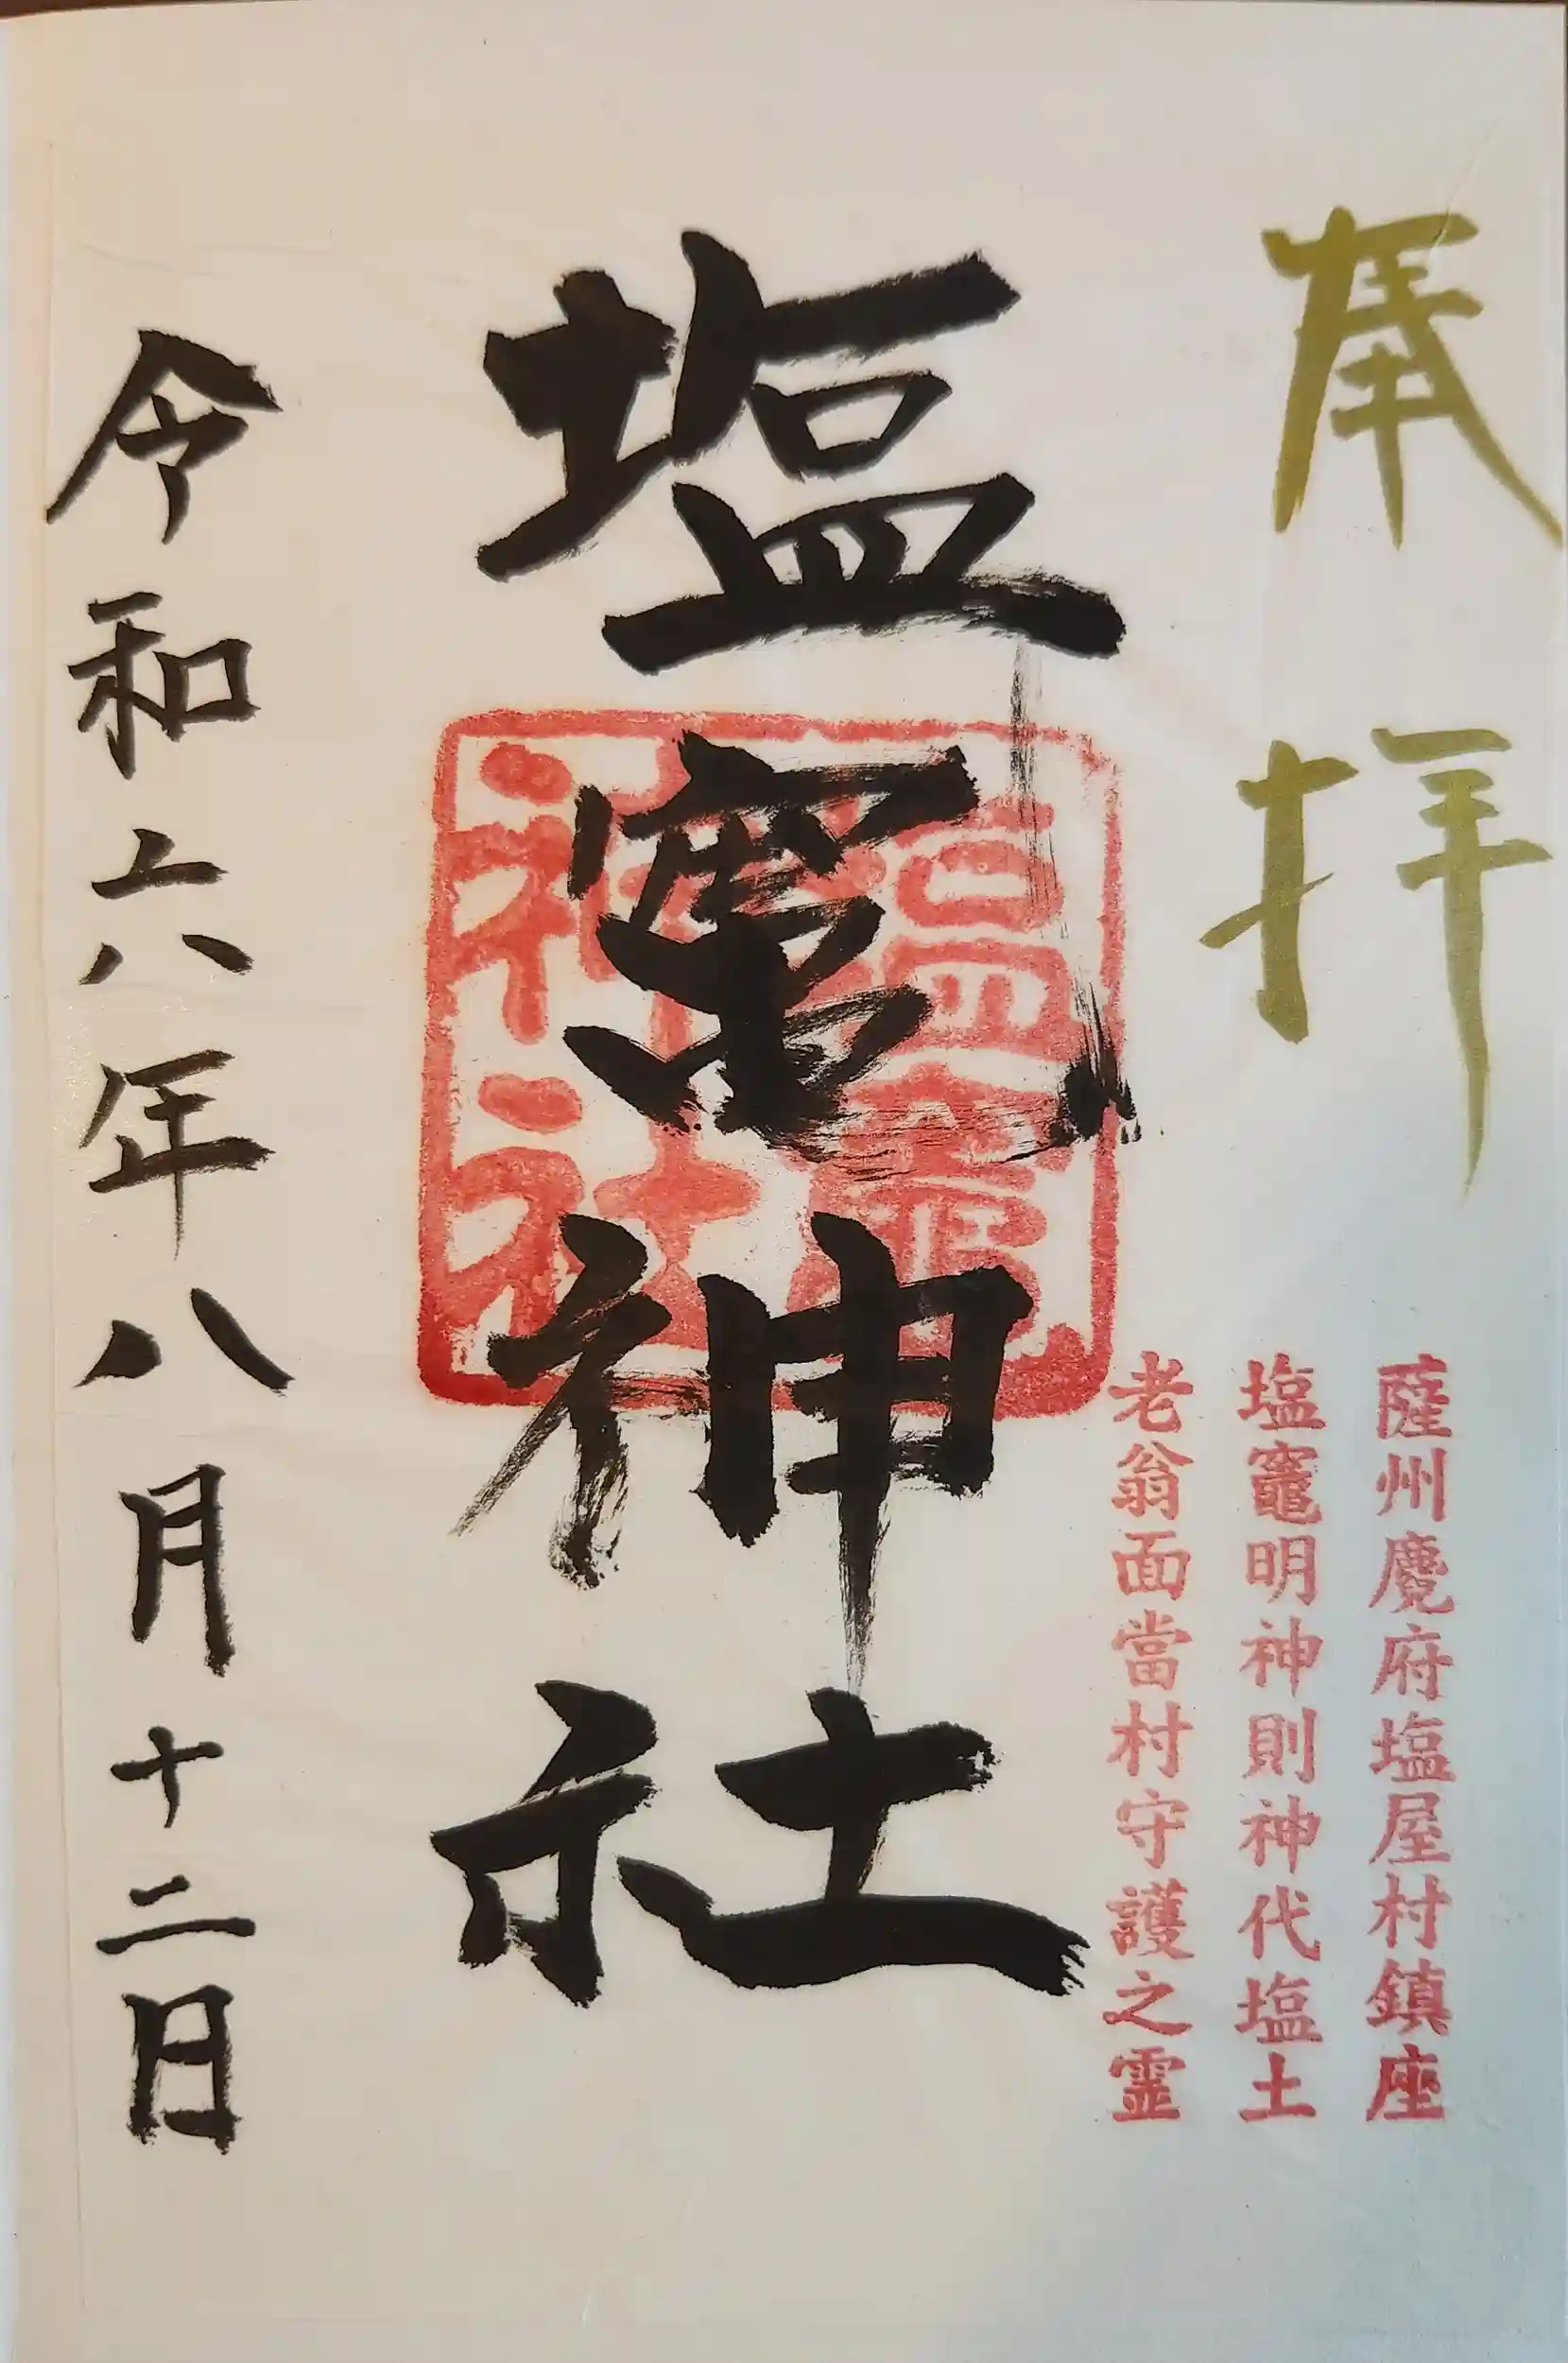 奉拝
薩州麑府塩屋村鎮座
塩竈明神則神代塩土
老翁面當村守護之霊
塩竃神社
塩竃
神社
令和六年八月十二日